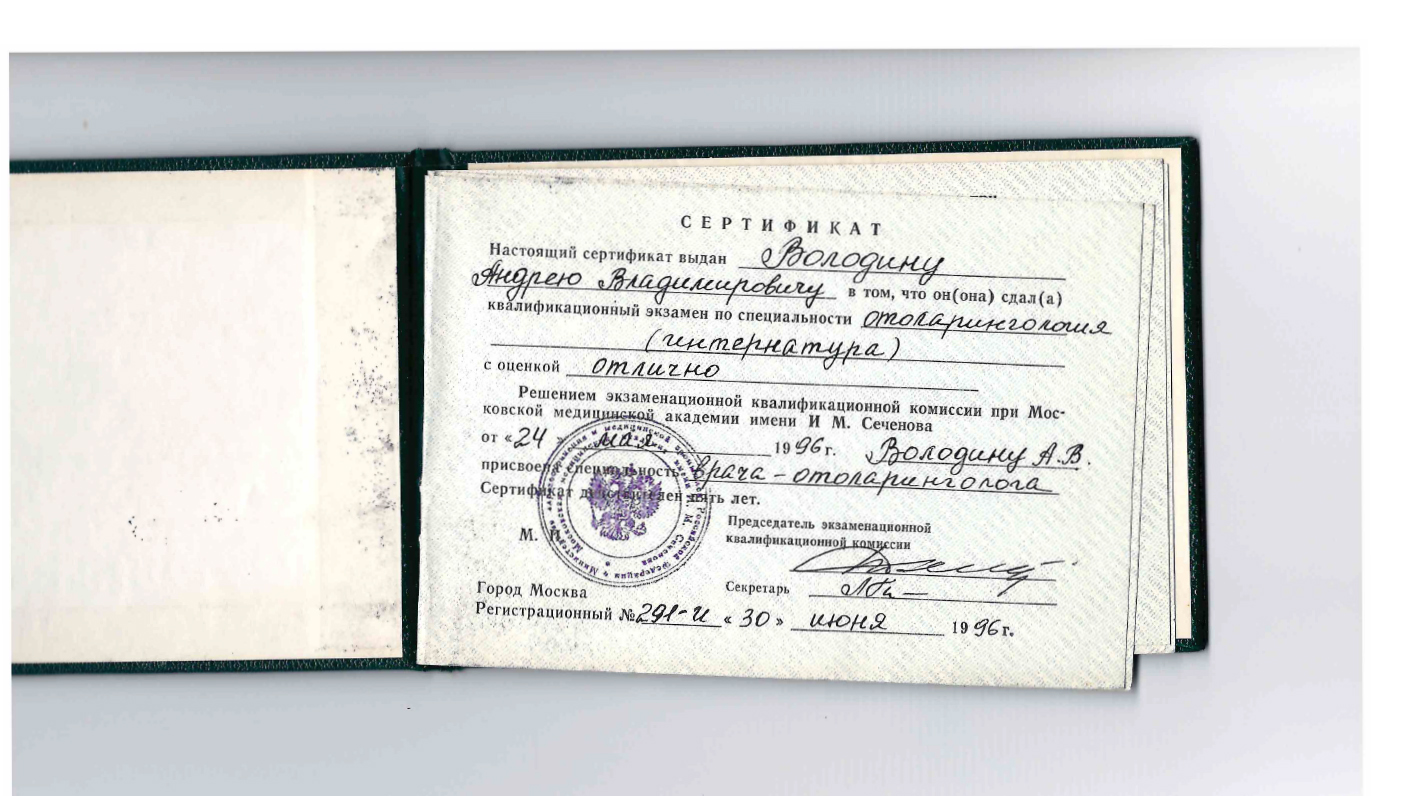 СЕРТИФИКАТ
Настоящий сертификат выдан Володину
Андрею Владимировичу в том, что он(она) сдал(а)
квалификационный экзамен по специальности отоларингология
(интернатура)
с оценкой отлично
Решением экзаменационной квалификационной комиссии при Мос-
ковской медицинской академии имени И М. Сеченова
от «24» мая 1996г. Володину А.В.
присвоена специальность врача-отоларинголога
Сертификат действителен пять лет.
Председатель экзаменационной
квалификационной комиссии
М. П.
Секретарь
Город Москва
Регистрационный №291-и «30» июня 1996г.